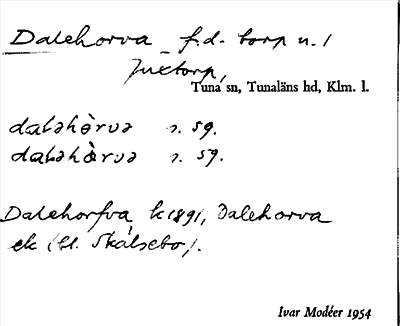 Dalehorva f.d. torp u. /
Juxtorp,
Tuna sn, Tunaläns hd, Klm. l.
daləhòrvə s. 59.
daləhàrvə s. 59.
Dalehorfva k 1891, Dalehorva
ek (bl. Skälsebo).
Ivar Modéer 1954